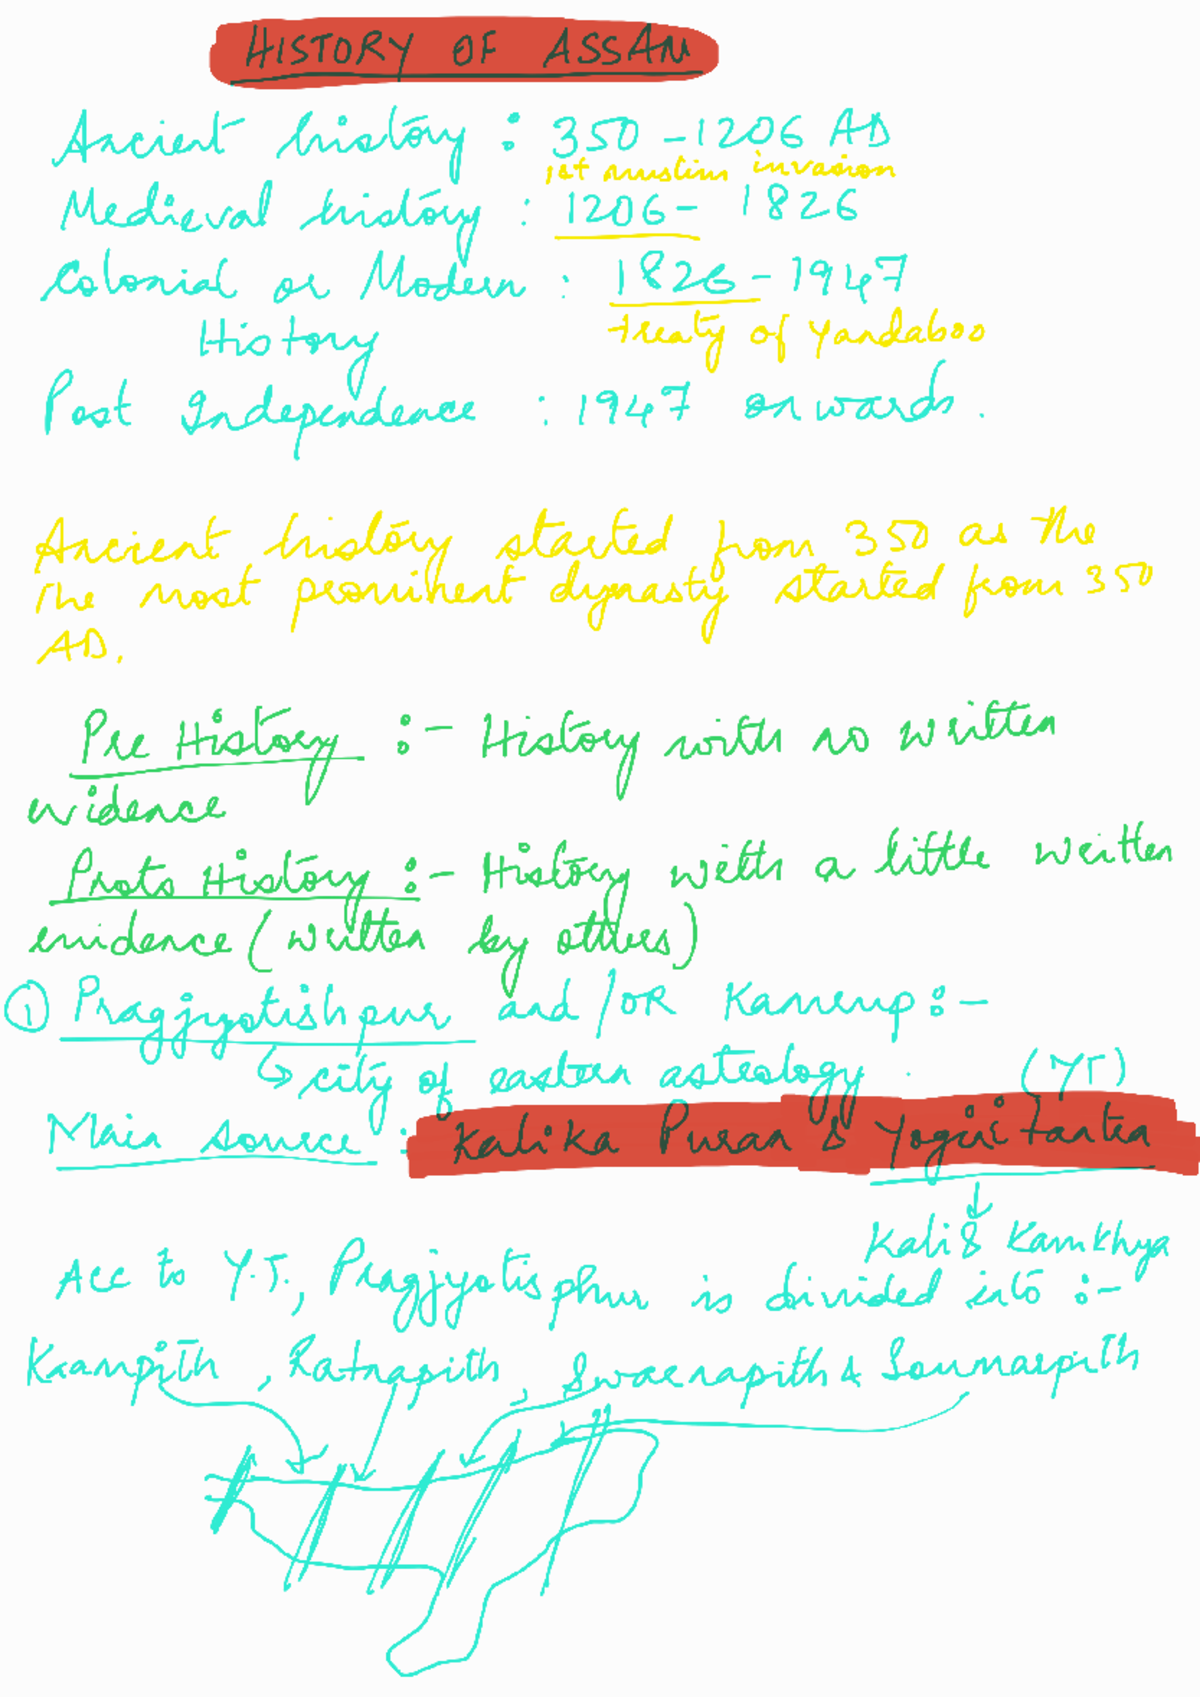 HISTORY OF ASSAM
Ancient history : 350 - 1206 AD
1st muslim invasion
Medieval history : 1206 - 1826
Colonial or Modern : 1826 - 1947
History
treaty of Yandaboo
Post Independence : 1947 onwards.
Ancient history started from 350 as the
the most prominent dynasty started from 350
AD.
Pre History :- History with no written
evidence
Proto History :- History with a little written
evidence (written by others)
① Pragjyotishpur and /OR Kamrup :-
↳ city of eastern astrology.
(YT)
Main source : Kalika Puran & Yogini tantra
↓
Kali & Kamkhya
Acc to Y.T., Pragjyotisphur is divided into :-
Kaampith, Ratnapith, Swarnapith & Soumarpith